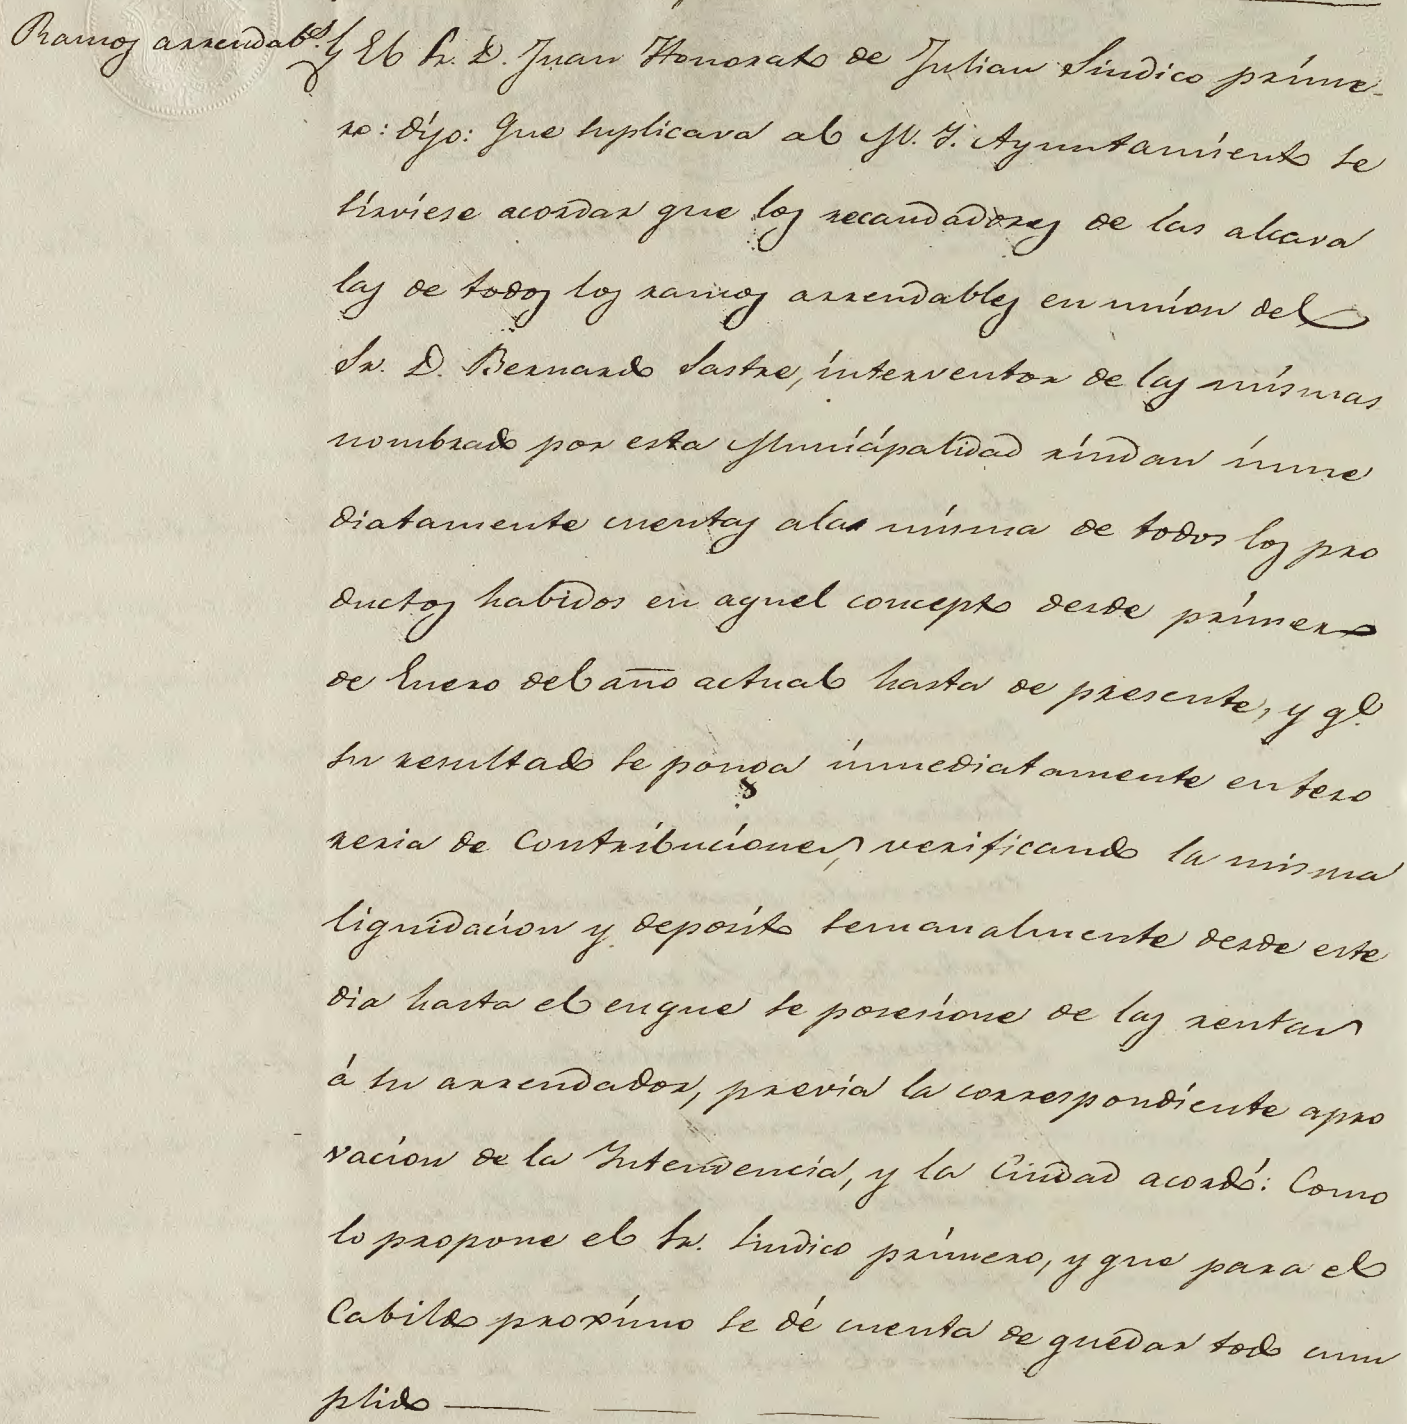 Ramos arrendabes.
El Sr. D. Juan Honorato de Julian Sindico prime-
ro: dijo: Que suplicava al M. Y. Ayuntamiento se
sirviese acordar que los recaudadores de las alcava
las de todos los ramos arrendables en union del
Sr. D. Bernardo Sastre, interventor de las mismas
nombrado por esta Municipalidad rindan inme
diatamente cuentas a la misma de todos los pro
ductos habidos en aquel concepto desde primero
de Enero del año actual hasta de presente, y qe.
su resultado se ponga inmediatamente en teso
reria de Contribuciones, verificando la misma
liquidacion y deposito semanalmente desde este
dia hasta el en que se posesione de las rentas
á su arrendador, previa la correspondiente apro
vacion de la Intendencia, y la Ciudad acordó: Como
lo propone el Sr. Sindico primero, y que para el
Cabildo proximo se dé cuenta de quedar todo cum
plido